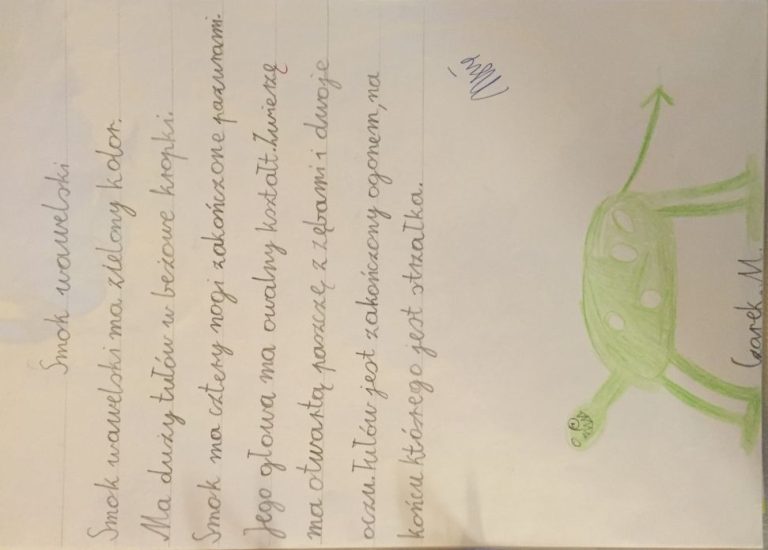 Smok wawelski
Smok wawelski ma zielony kolor.
Ma duży tułów w beżowe kropki.
Smok ma cztery nogi zakończone pazurami.
Jego głowa ma owalny kształt. Zwierzę
ma otwartą paszczę z zębami i dwoje
oczu. Tułów jest zakończony ogonem, na
końcu którego jest strzałka.
Czarek. M.